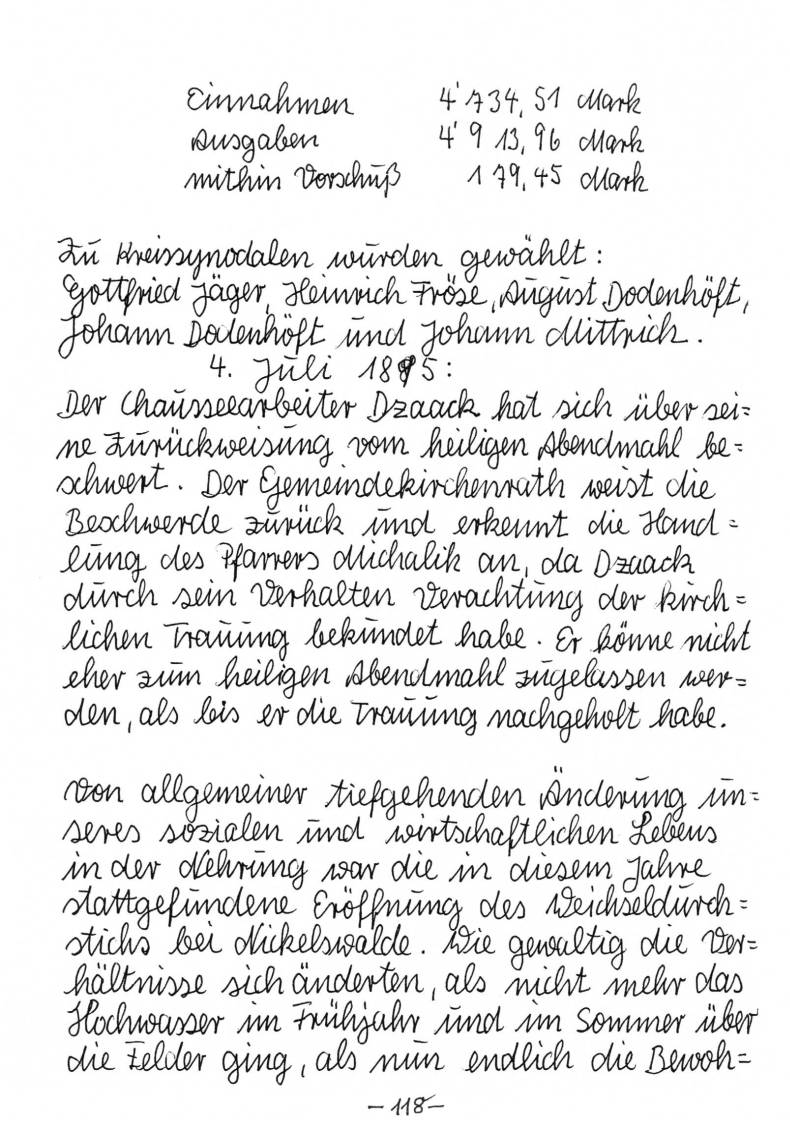 Einnahmen 4'734,51 Mark
Ausgaben 4'913,96 Mark
mithin Vorschuß 179,45 Mark
Zu Kreissynodalen wurden gewählt:
Gottfried Jäger, Heinrich Fröse, August Dodenhöft,
Johann Dodenhöft und Johann Mittrich.
4. Juli 1895:
Der Chausseearbeiter Dzaack hat sich über sei=
ne Zurückweisung vom heiligen Abendmahl be=
schwert. Der Gemeindekirchenrath weist die
Beschwerde zurück und erkennt die Hand=
lung des Pfarrers Michalik an, da Dzaack
durch sein Verhalten Verachtung der kirch=
lichen Trauung bekundet habe. Er könne nicht
eher zum heiligen Abendmahl zugelassen wer=
den, als bis er die Trauung nachgeholt habe.
Von allgemeiner tiefgehenden Änderung un=
seres sozialen und wirtschaftlichen Lebens
in der Nehrung war die in diesem Jahre
stattgefundene Eröffnung des Weichseldurch=
stichs bei Nickelswalde. Wie gewaltig die Ver=
hältnisse sich änderten, als nicht mehr das
Hochwasser im Frühjahr und im Sommer über
die Felder ging, als nun endlich die Bewoh=
- 118 -